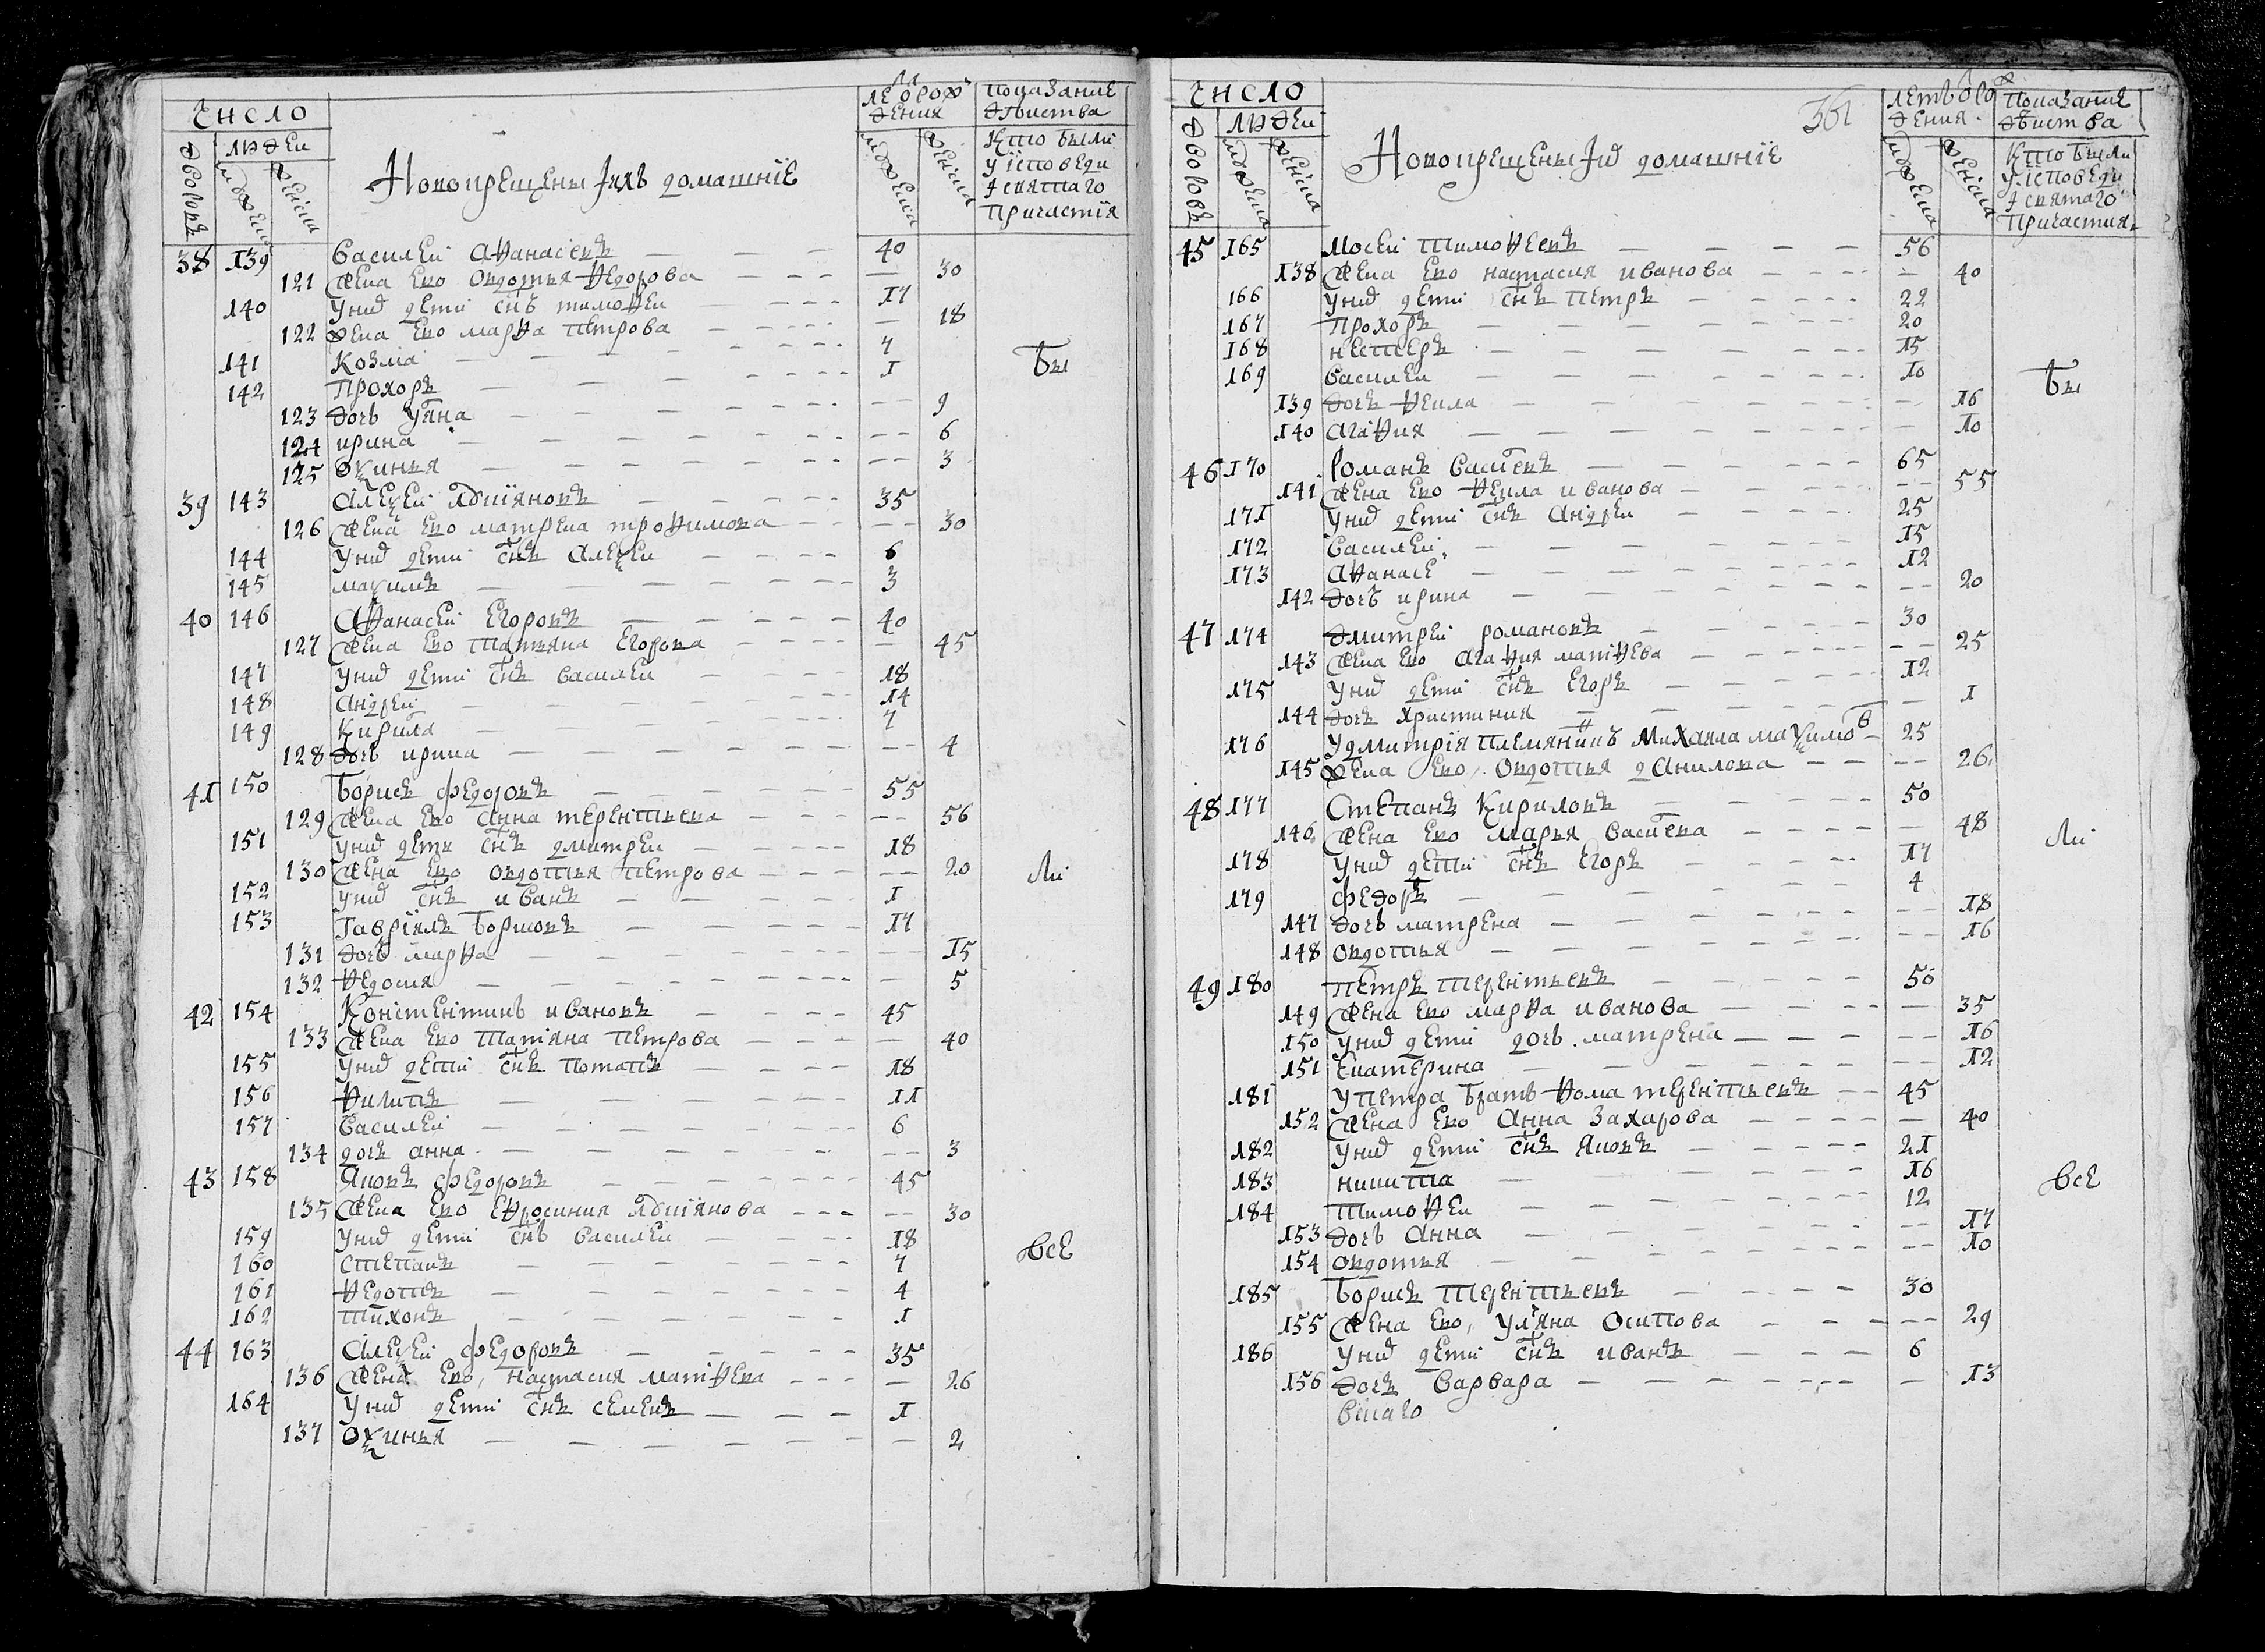 число
людей
дворовъ
мужеска
женска
Новокрещены Ихъ домашнїе
лѣ ѿ рож
дения
мужеска
женска
показание
дѣиства
Кто были
У исповеди
И святаго
Причастїя
38 139 Василеи Аѳанасевъ 40
121 Жена Ево Овдотья Ѳедорова 30
140 Униѡ дети снъ тимоѳеи 17
122 Жена Ево марѳа Петрова 18
141 Козма 7
142 Прохоръ 1
123 дочь Уяна 9
124 ирина 6
125 Оѯинья 3
39 143 Алеѯеи Адрияновъ 35
126 Жена Ево матрена троѳимова 30
144 Униѡ дети снъ Алеѯеи 6
145 маѯимъ 3
40 146 Аѳанасеи Егоровъ 40
127 Жена Ево Татьяна Егорова 45
147 Униѡ дети снъ Василеи 18
148 Андреи 14
149 Кирила 7
128 дочь ирина 4
41 150 Борисъ Федоровъ 55
129 Жена Ево Анна терентьева 56
151 Униѡ дети снъ дмитреи 18
130 Жена Ево овдотья Петрова 20
152 Униѡ снъ иванъ 1
153 Гаврїилъ Борисовъ 17
131 дочь марѳа 15
132 Ѳедосия 5
42 154 Констентинъ ивановъ 45
133 Жена Ево Татяна Петрова 40
155 Униѡ дети снъ Потапъ 18
156 Ѳилипъ 11
157 Василеи 6
134 дочь анна 3
43 158 Яковъ Федоровъ 45
135 Жена Ево Еѳросиния Адриянова 30
159 Униѡ дети снъ Василеи 18
160 Степанъ 7
161 Ѳедотъ 4
162 Тихонъ 1
44 163 Алеѯеи Федоровъ 35
136 Жена Ево, Настасия матѳева 26
164 Униѡ дети снъ семенъ 1
137 Оѯинья 2
Бы
Ли
Все
361
число
людеи
дворовъ
мужеска
женска
Новокрещены Иѡ домашнїе
летъ ѿ ро ж
дения
мужеска
женска
Показание
дѣиства
Кто были
У исповеди
И святаго
Причастия
45 165 Мосеи Тимоѳеевъ 56
138 Жена Ево настасия иванова 40
166 Униѡ дети снъ Петръ 22
167 Прохоръ 20
168 нестеръ 15
169 Василеи 10
139 дочь Ѳекла 16
140 Агаѳия 10
46 170 Романъ Васиевъ 65
141 Жена Ево Ѳекла иванова 55
171 Униѡ дети снъ Андреи 25
172 Василеи 15
173 Аѳанасе 12
142 дочь ирина 20
47 174 дмитреи романовъ 30
143 Жена Ево Агаѳия матѳева 25
175 Униѡ дети снъ Егоръ 12
144 дочь христиния 1
176 Удмитрїя племяникъ Михаила маѯимов 25
145 Жена Ево, Овдотья данилова 26
48 177 Степанъ Кириловъ 50
146 Жена Ево марья Васиева 48
178 Униѡ дети снъ Егоръ 17
179 Федоръ 4
147 дочь матрена 18
148 овдотья 16
49 180 Петръ терентьевъ 50
149 Жена Ево марѳа иванова 35
150 Униѡ дети дочь матрена 16
151 Екатерина 12
181 У Петра братъ Ѳома терентьевъ 45
152 Жена Ево Анна Захарова 40
182 Униѡ дети снъ Яковъ 21
183 никита 16
184 тимоѳеи 12
153 дочь Анна 17
154 овдотья 10
185 Борисъ терентьевъ 30
155 Жена Ево, Уляна Осипова 29
186 Униѡ дети снъ иванъ 6
156 дочь Варвара 13
Всаго
Бы
Ли
все